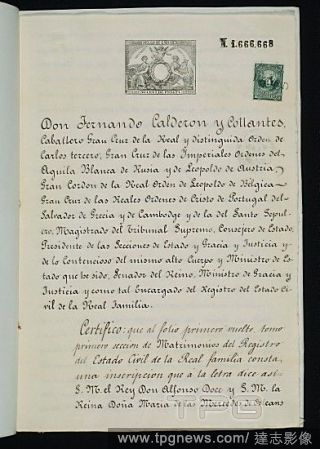 N. 1.666,668
Don Fernando Calderon y Collantes,
Caballero Gran Cruz de la Real y distinguida Orden de
Carlos tercero, Gran Cruz de las Imperiales Ordenes del
Aguila Blanca de Rusia y de Leopoldo de Austria,
Gran Cordon de la Real Orden de Leopoldo de Bélgica
Gran Cruz de las Reales Ordenes de Cristo de Portugal del
Salvador de Grecia y de Cambodge y de la del Santo Sepul-
cro, Magistrado del Tribunal Supremo, Consejero de Estado,
Presidente de las Secciones de Estado y Gracia y Justicia y
de lo Contencioso del mismo alto Cuerpo y Ministro de Es-
tado que ha sido, Senador del Reino, Ministro de Gracia y
Justicia y como tal Encargado del Registro del Estado Ci-
vil de la Real Familia.
Certifico: que al folio primero vuelto, tomo
primero seccion de Matrimonios del Registro
del Estado Civil de la Real familia consta
una inscripcion que á la letra dice asi-
S. M. el Rey Don Alfonso Doce y S. M. la
Reina Doña Maria de las Mercedes de Orleans
TPG
www.tpgnews.com / 達志影像